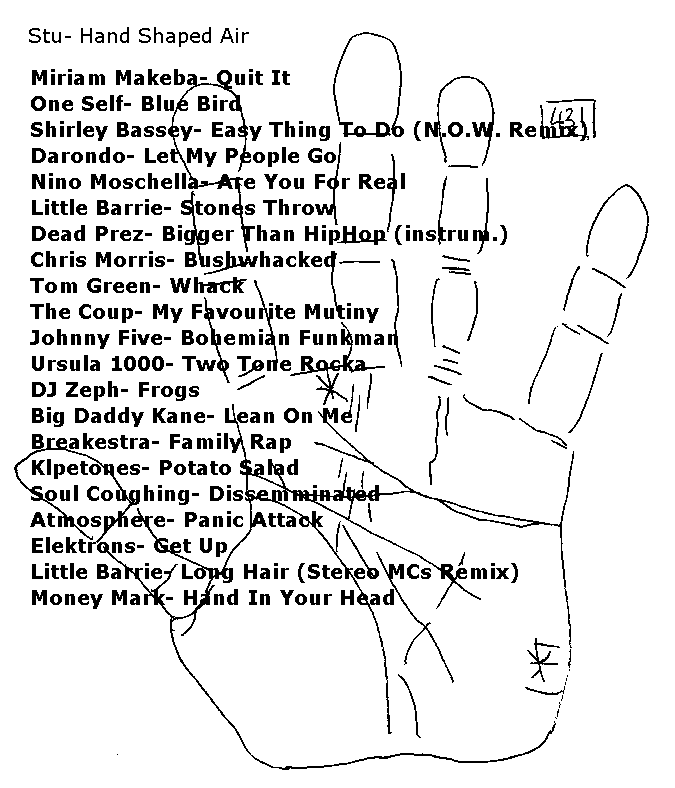 Stu- Hand Shaped Air
Miriam Makeba- Quit It
One Self- Blue Bird
Shirley Bassey- Easy Thing To Do (N.O.W. Remix)
43
Darondo- Let My People Go
Nino Moschella- Are You For Real
Little Barrie- Stones Throw
Dead Prez- Bigger Than HipHop (instrum.)
Chris Morris- Bushwhacked
Tom Green- Whack
The Coup- My Favourite Mutiny
Johnny Five- Bohemian Funkman
Ursula 1000- Two Tone Rocka
DJ Zeph- Frogs
Big Daddy Kane- Lean On Me
Breakestra- Family Rap
Klpetones- Potato Salad
Soul Coughing- Dissemminated
Atmosphere- Panic Attack
Elektrons- Get Up
Little Barrie- Long Hair (Stereo MCs Remix)
Money Mark- Hand In Your Head